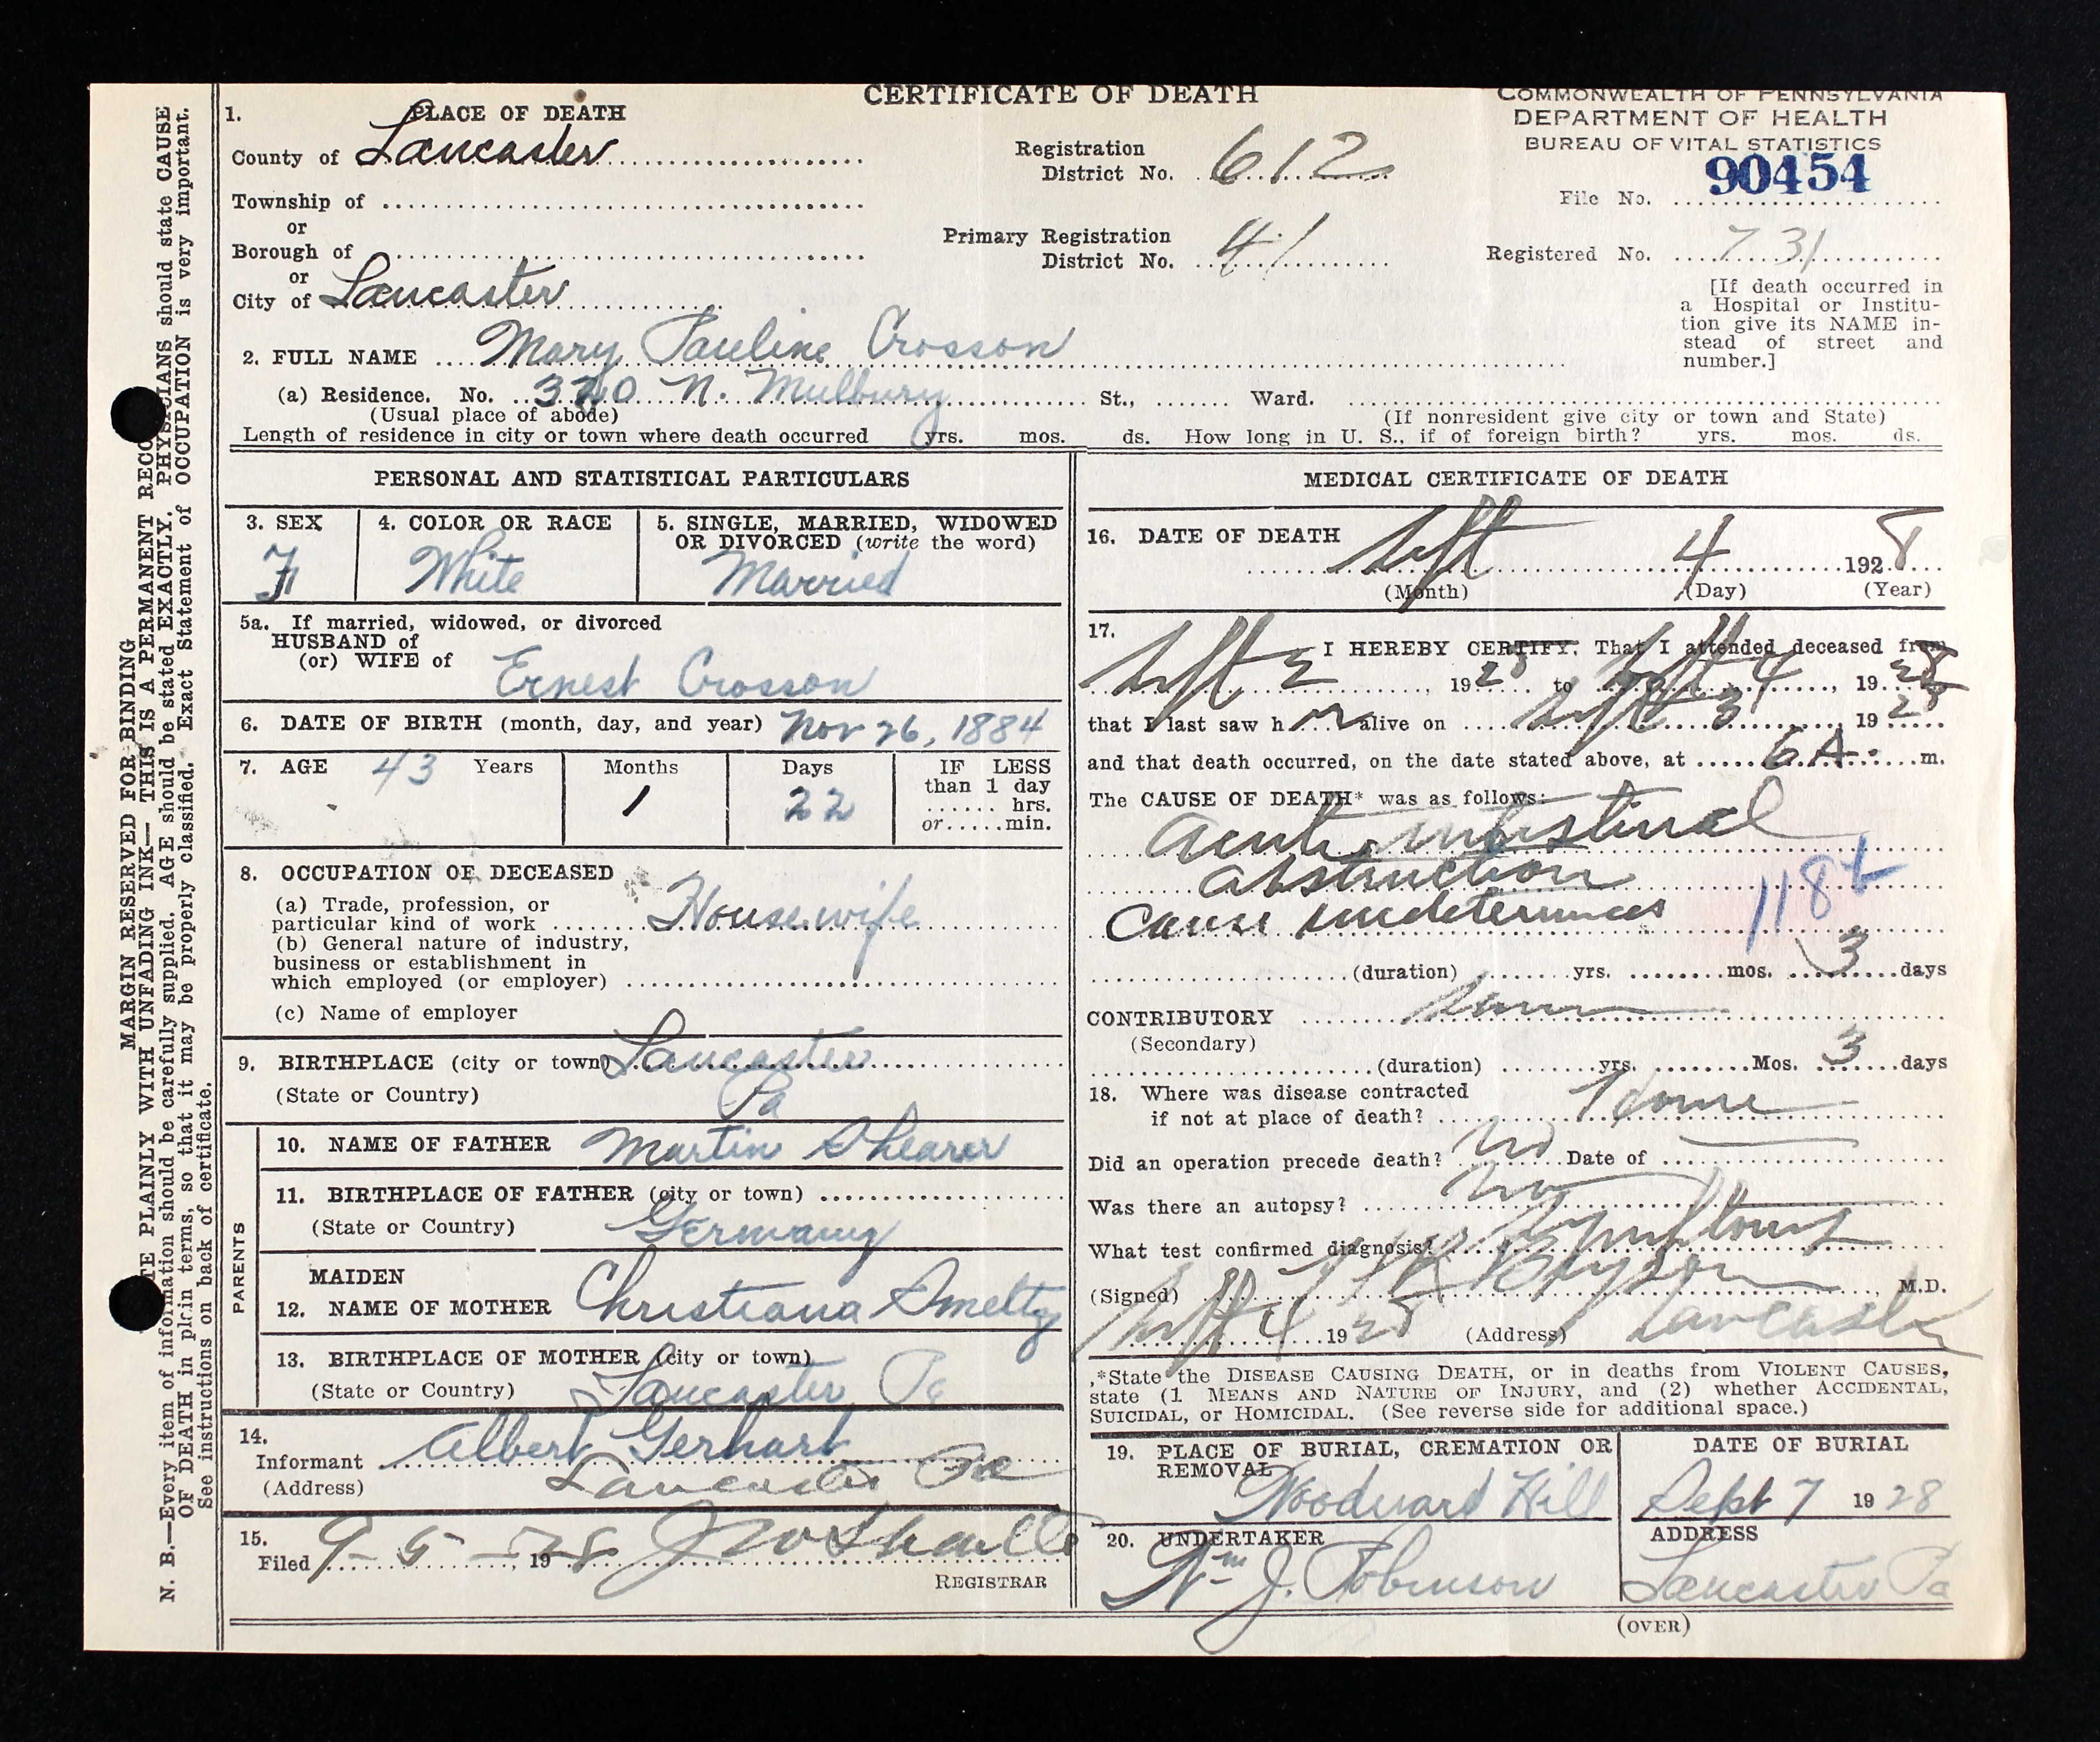 CERTIFICATE OF DEATH
COMMONWEALTH OF PENNSYLVANIA
DEPARTMENT OF HEALTH
BUREAU OF VITAL STATISTICS
1. PLACE OF DEATH
County of Lancaster
Registration District No. 612
File No. 90454
Township of
or
Borough of
Primary Registration District No. 41
Registered No. 731
or
City of Lancaster
[If death occurred in
a Hospital or Institu-
tion give its NAME in-
stead of street and
number.]
2. FULL NAME Mary Pauline Crosson
(a) Residence. No. 320 N. Mulbury St., Ward.
(Usual place of abode) (If nonresident give city or town and State)
Length of residence in city or town where death occurred yrs. mos. ds. How long in U. S., if of foreign birth? yrs. mos. ds.
PERSONAL AND STATISTICAL PARTICULARS
3. SEX F
4. COLOR OR RACE White
5. SINGLE, MARRIED, WIDOWED
OR DIVORCED (write the word)
Married
5a. If married, widowed, or divorced
HUSBAND of
(or) WIFE of Ernest Crosson
6. DATE OF BIRTH (month, day, and year) Nov 26, 1884
7. AGE 43 Years Months 1 Days 22
IF LESS
than 1 day
hrs.
or min.
8. OCCUPATION OF DECEASED
(a) Trade, profession, or
particular kind of work Housewife
(b) General nature of industry,
business or establishment in
which employed (or employer)
(c) Name of employer
9. BIRTHPLACE (city or town) Lancaster
(State or Country) Pa
PARENTS
10. NAME OF FATHER Martin Shearer
11. BIRTHPLACE OF FATHER (city or town)
(State or Country) Germany
MAIDEN
12. NAME OF MOTHER Christiana Smeltz
13. BIRTHPLACE OF MOTHER (city or town)
(State or Country) Lancaster Pa
14.
Informant Albert Gerhart
(Address) Lancaster Pa
15.
Filed 9-5-1928
REGISTRAR
MEDICAL CERTIFICATE OF DEATH
16. DATE OF DEATH
Sept 4 1928
(Month) (Day) (Year)
17. I HEREBY CERTIFY, That I attended deceased from
Sept 2, 1928 to Sept 4, 1928
that I last saw h er alive on Sept 3, 1928
and that death occurred, on the date stated above, at 6 A. m.
The CAUSE OF DEATH* was as follows:
Acute intestinal
obstruction
Cause undetermined
118 b
(duration) yrs. mos. 3 days
CONTRIBUTORY
(Secondary)
(duration) yrs. Mos. 3 days
18. Where was disease contracted
if not at place of death? Home
Did an operation precede death? No Date of
Was there an autopsy? No
What test confirmed diagnosis? Symptoms
(Signed) Bryson, M.D.
Sept 4 1928 (Address) Lancaster
*State the DISEASE CAUSING DEATH, or in deaths from VIOLENT CAUSES,
state (1 MEANS AND NATURE OF INJURY, and (2) whether ACCIDENTAL,
SUICIDAL, or HOMICIDAL. (See reverse side for additional space.)
19. PLACE OF BURIAL, CREMATION OR
REMOVAL
Woodward Hill
DATE OF BURIAL
Sept 7 1928
20. UNDERTAKER
Wm J. Robinson
ADDRESS
Lancaster Pa
(OVER)
MARGIN RESERVED FOR BINDING
TE PLAINLY WITH UNFADING INK—THIS IS A PERMANENT RECO
N. B.—Every item of information should be carefully supplied. AGE should be stated EXACTLY. PHYSICIANS should state CAUSE
OF DEATH in plain terms, so that it may be properly classified. Exact Statement of OCCUPATION is very important.
See instructions on back of certificate.